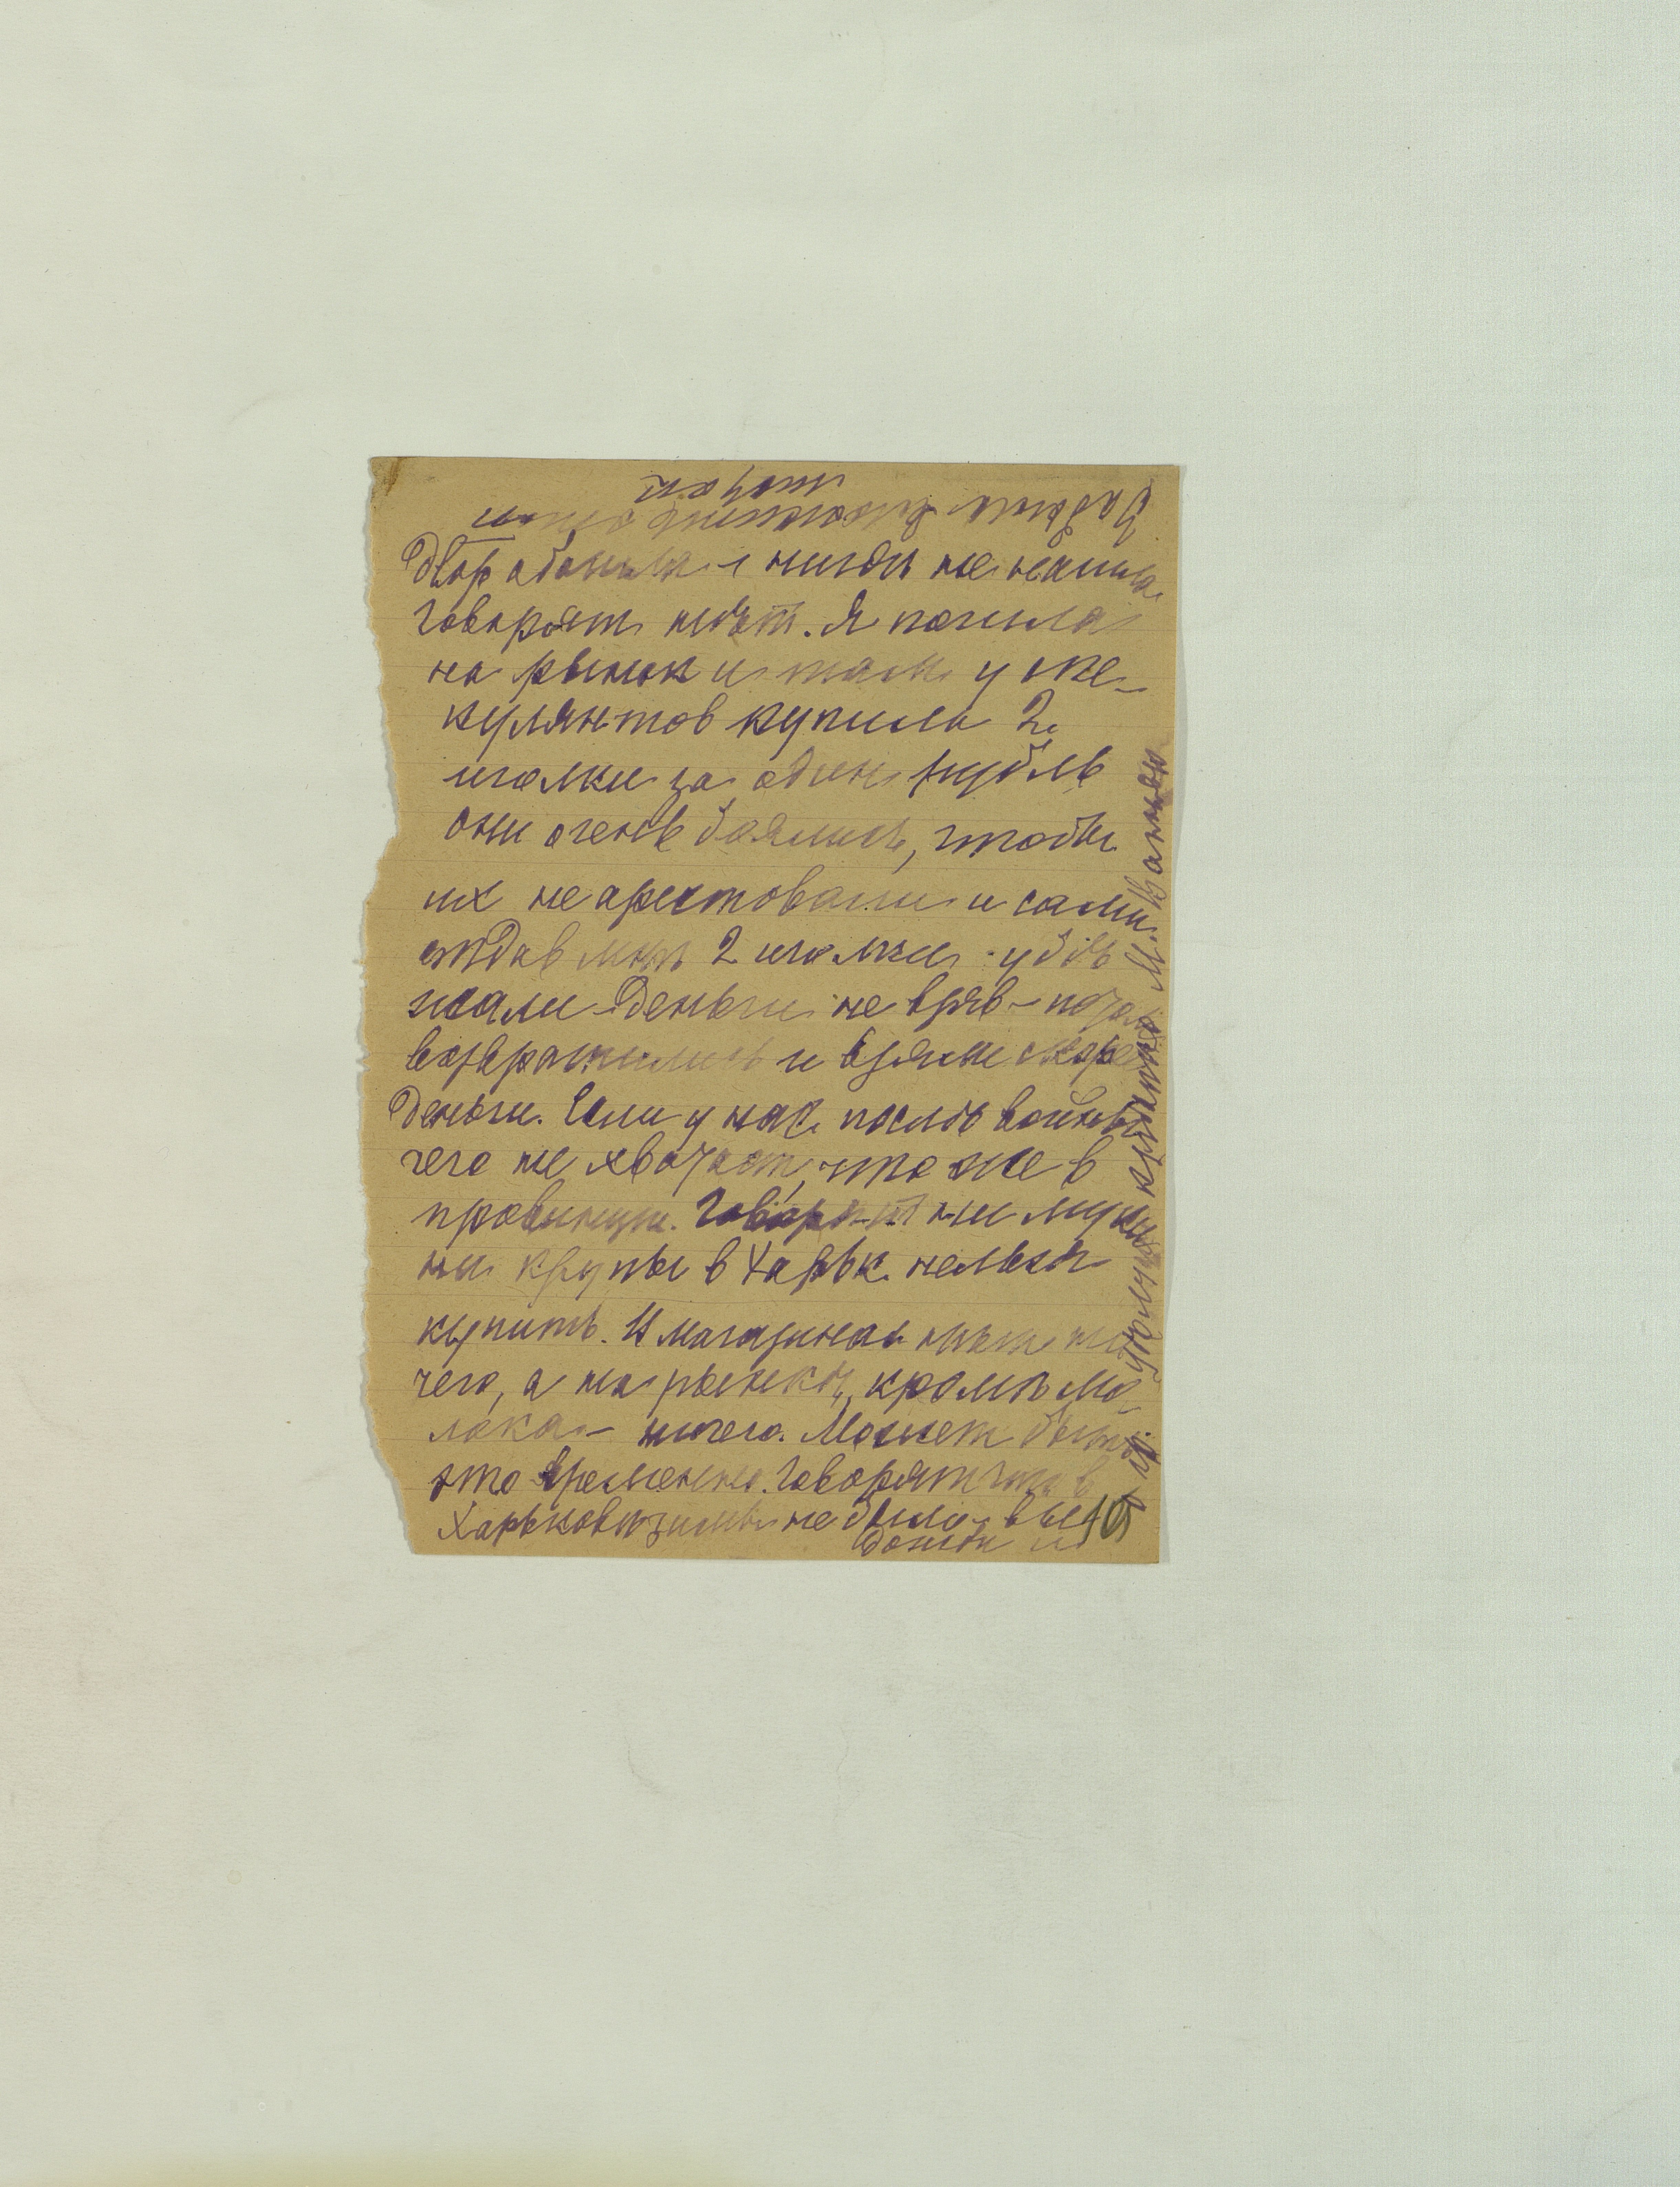 Двор обошла и нигде не нашла
говорят нѣт. Я пошла
на рынок и там у спе-
кулянтов купила 2
иголки за один рубль
они очень боялись, чтобы
их не арестовали и сами
отдав мнѣ 2 иголки - убѣ
жали деньги не взяв - потом
возвратились и взяли скоре
деньги. Если у нас послѣ войны
чего не хватает, что же в
провинции. Говорят ни муки
ни крупы в Харьк. нельзя
купить. В магазинах нѣт ни
чего, а на рынкѣ, кромѣ мо
лока - ничего. Может быть
это временно. Говорят что в
Харьковѣ зимы не было, все
дожди и
М. Ванною